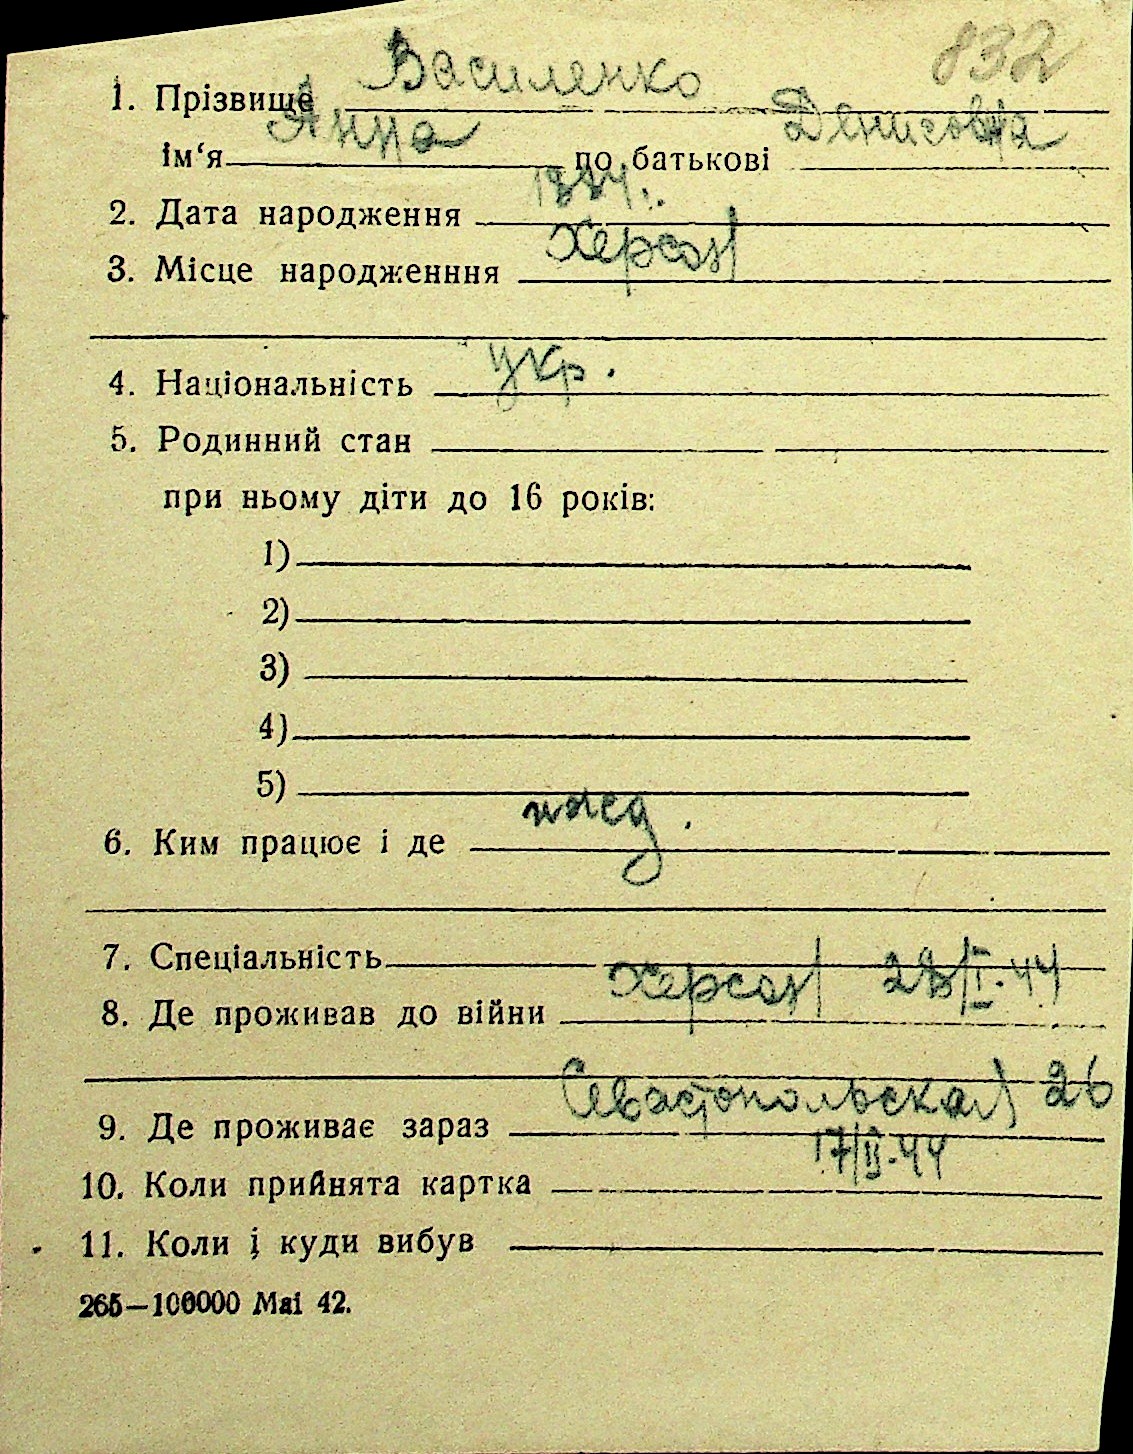 832
1. Прізвище Василенко
ім‘я Анна по батькові Денисовна
2. Дата народження
3. Місце народженння Херсон
4. Національність укр.
5. Родинний стан
при ньому діти до 16 років:
1)
2)
3)
4)
5)
6. Ким працює і де
7. Спеціальність
8. Де проживав до війни Херсон 28/I-44
9. Де проживає зараз Севастопольская 26
10. Коли прийнята картка 17/II-44
11. Коли і куди вибув
265—100000 Mai 42.